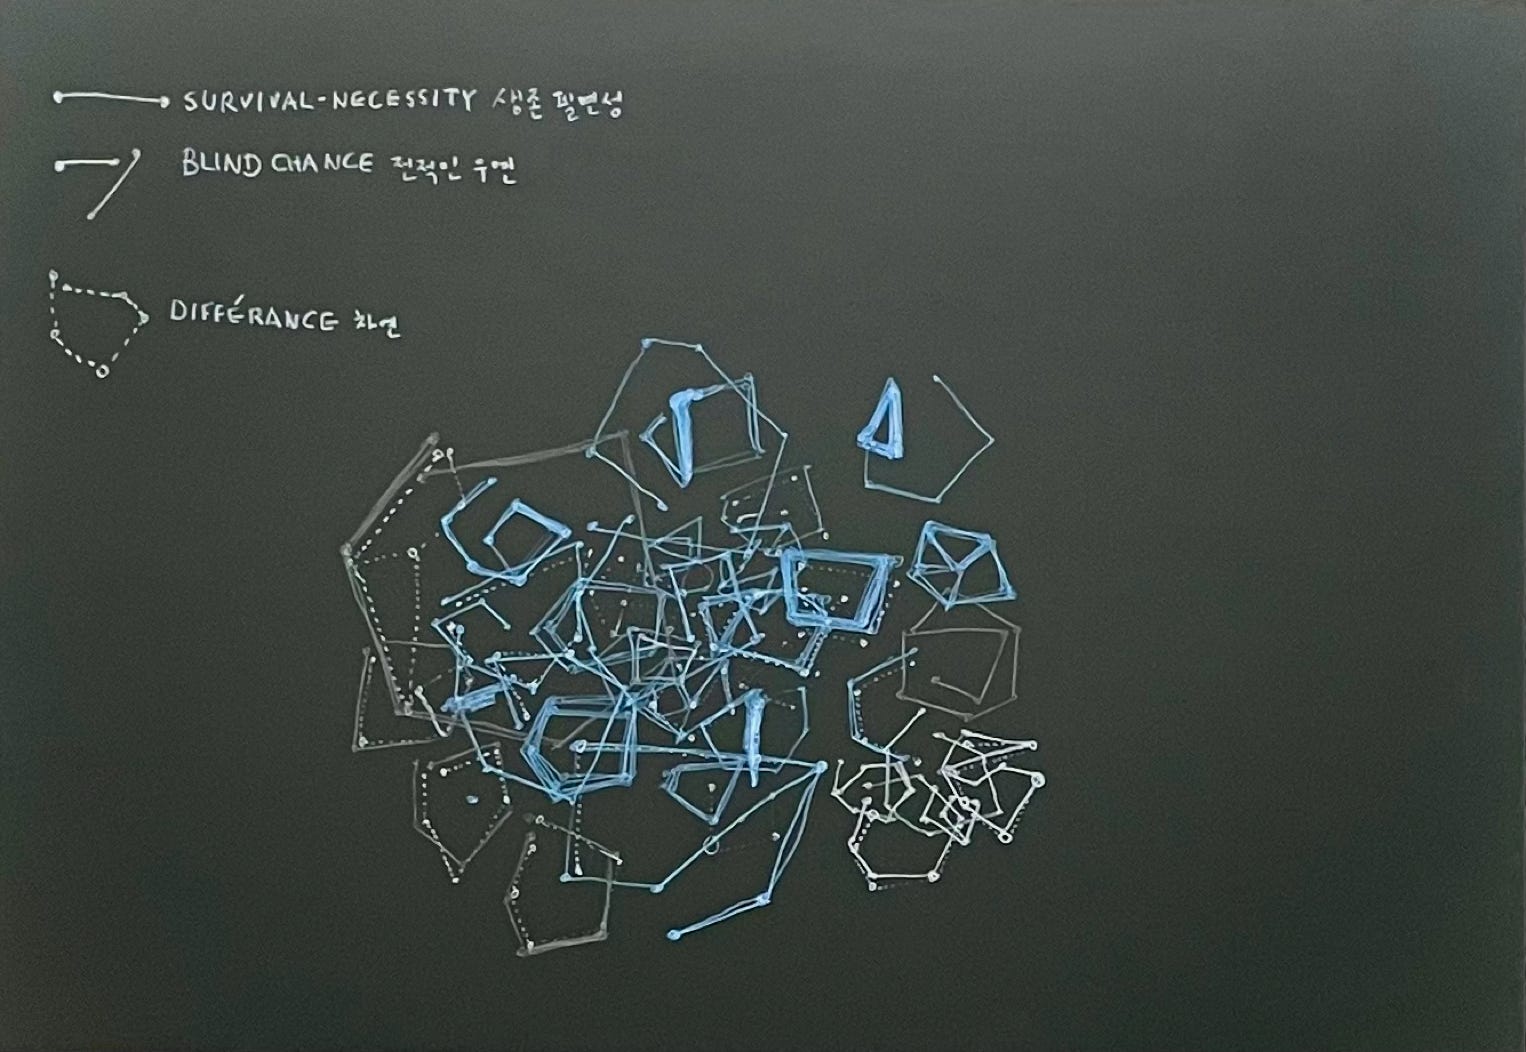 SURVIVAL-NECESSITY 생존 필연성
BLIND CHANCE 전적인 우연
DIFFÉRANCE 차연